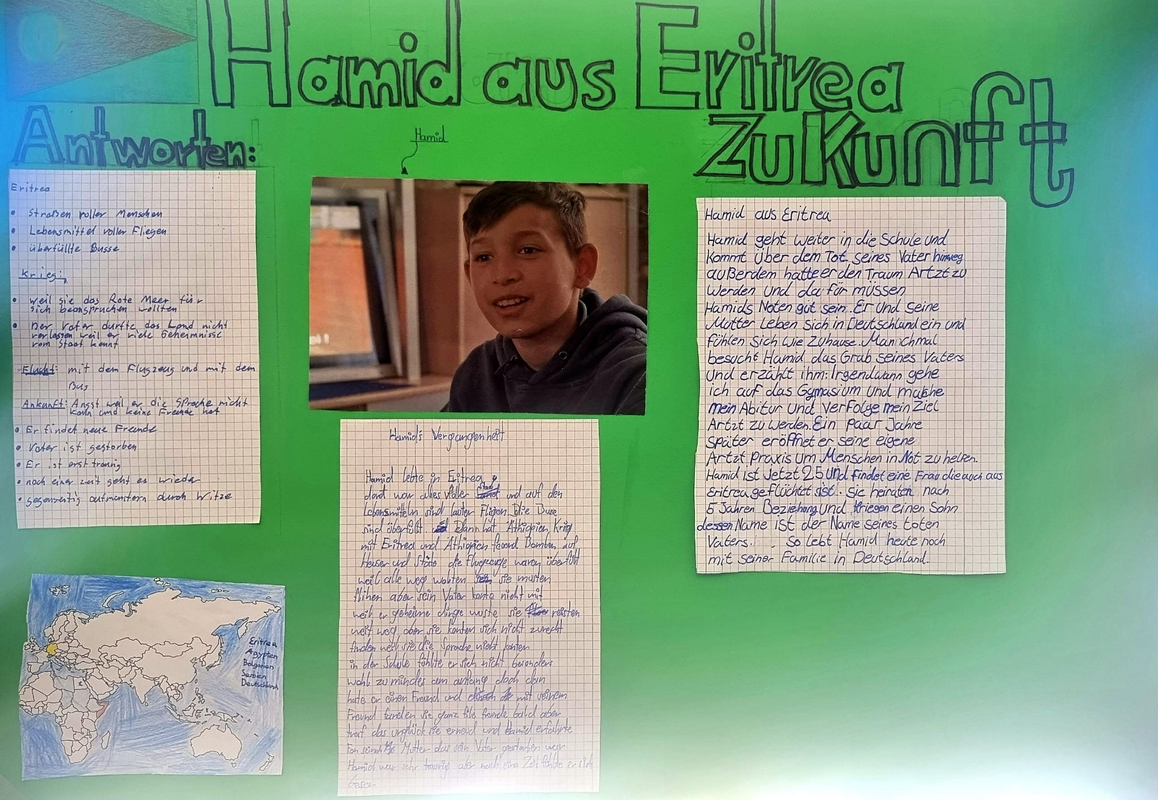 Hamid aus Eritrea
Antworten:
Eritrea
• Straßen voller Menschen
• Lebensmittel voller Fliegen
• überfüllte Busse
Krieg:
• weil sie das Rote Meer für
sich beanspruchen wollten
• Der Vater durfte das Land nicht
verlassen weil er viele Geheimnisse
vom Staat kennt
Flucht: mit dem Flugzeug und mit dem
Bus
Ankunft: Angst weil er die Sprache nicht
kann und keine Freunde hat
• Er findet neue Freunde
• Vater ist gestorben
• Er ist erst traurig
• nach einer zeit geht es wieder
• gegenseitig aufmuntern durch Witze
Eritrea
Ägypten
Bulgarien
Serbien
Deutschland
Hamid
Hamid's Vergangenheit
Hamid lebte in Eritrea,
dort war alles voller und auf den
Lebensmitteln sind lauter Fligen die Buse
sind überfüllt Dann hat Äthiopien Krig
mit Eritrea und Äthiopien Bomben auf
Heuser und Städe die Flugzeuge waren überfült
weil alle weg wohlten sie musten
flihen aber sein Vater konte nicht mit
weil er geheime dinge wuste sie reisten
weit weg, aber sie konten sich nicht zurecht
finden weil sie die Sprache nicht konten
in der Schule fühlte er sich nicht besonders
wohl zu mindest am anfang doch dan
hate er einen Freund und mit seinem
Freund fanden sie ganz file freunde bald aber
traf das unglück sie erneud und Hamid erfährte
fon seiner Mutter das sein Vater gestorben war
Hamid war sehr traurig aber nach eine Zeit fühlte er sich
beser.
Zukunft
Hamid aus Eritrea
Hamid geht weiter in die Schule und
kommt über dem Tot seines Vater hinweg
außerdem hatte er den Traum Artzt zu
werden und da für müssen
Hamids Noten gut sein. Er und Seine
Mutter Leben sich in Deutschland ein und
fühlen sich wie Zuhause. Manichmal
besucht Hamid das Grab seines Vaters
und erzählt ihm: Irgendwann gehe
ich auf das Gymasium und mache
mein Abitur und verfolge mein Ziel
Artzt zu werden. Ein Paar Jahre
Später eröffnet er seine eigene
Artzt praxis um Menschen in Not zu helfen.
Hamid ist Jetzt 25 und findet eine Frau die auch aus
Eritrea geflüchtet ist. Sie heiraten nach
5 Jahren Beziehung und kriegen einen Sohn
dessen Name ist der Name seines toten
Vaters. so lebt Hamid heute noch
mit seiner Familie in Deutschland.